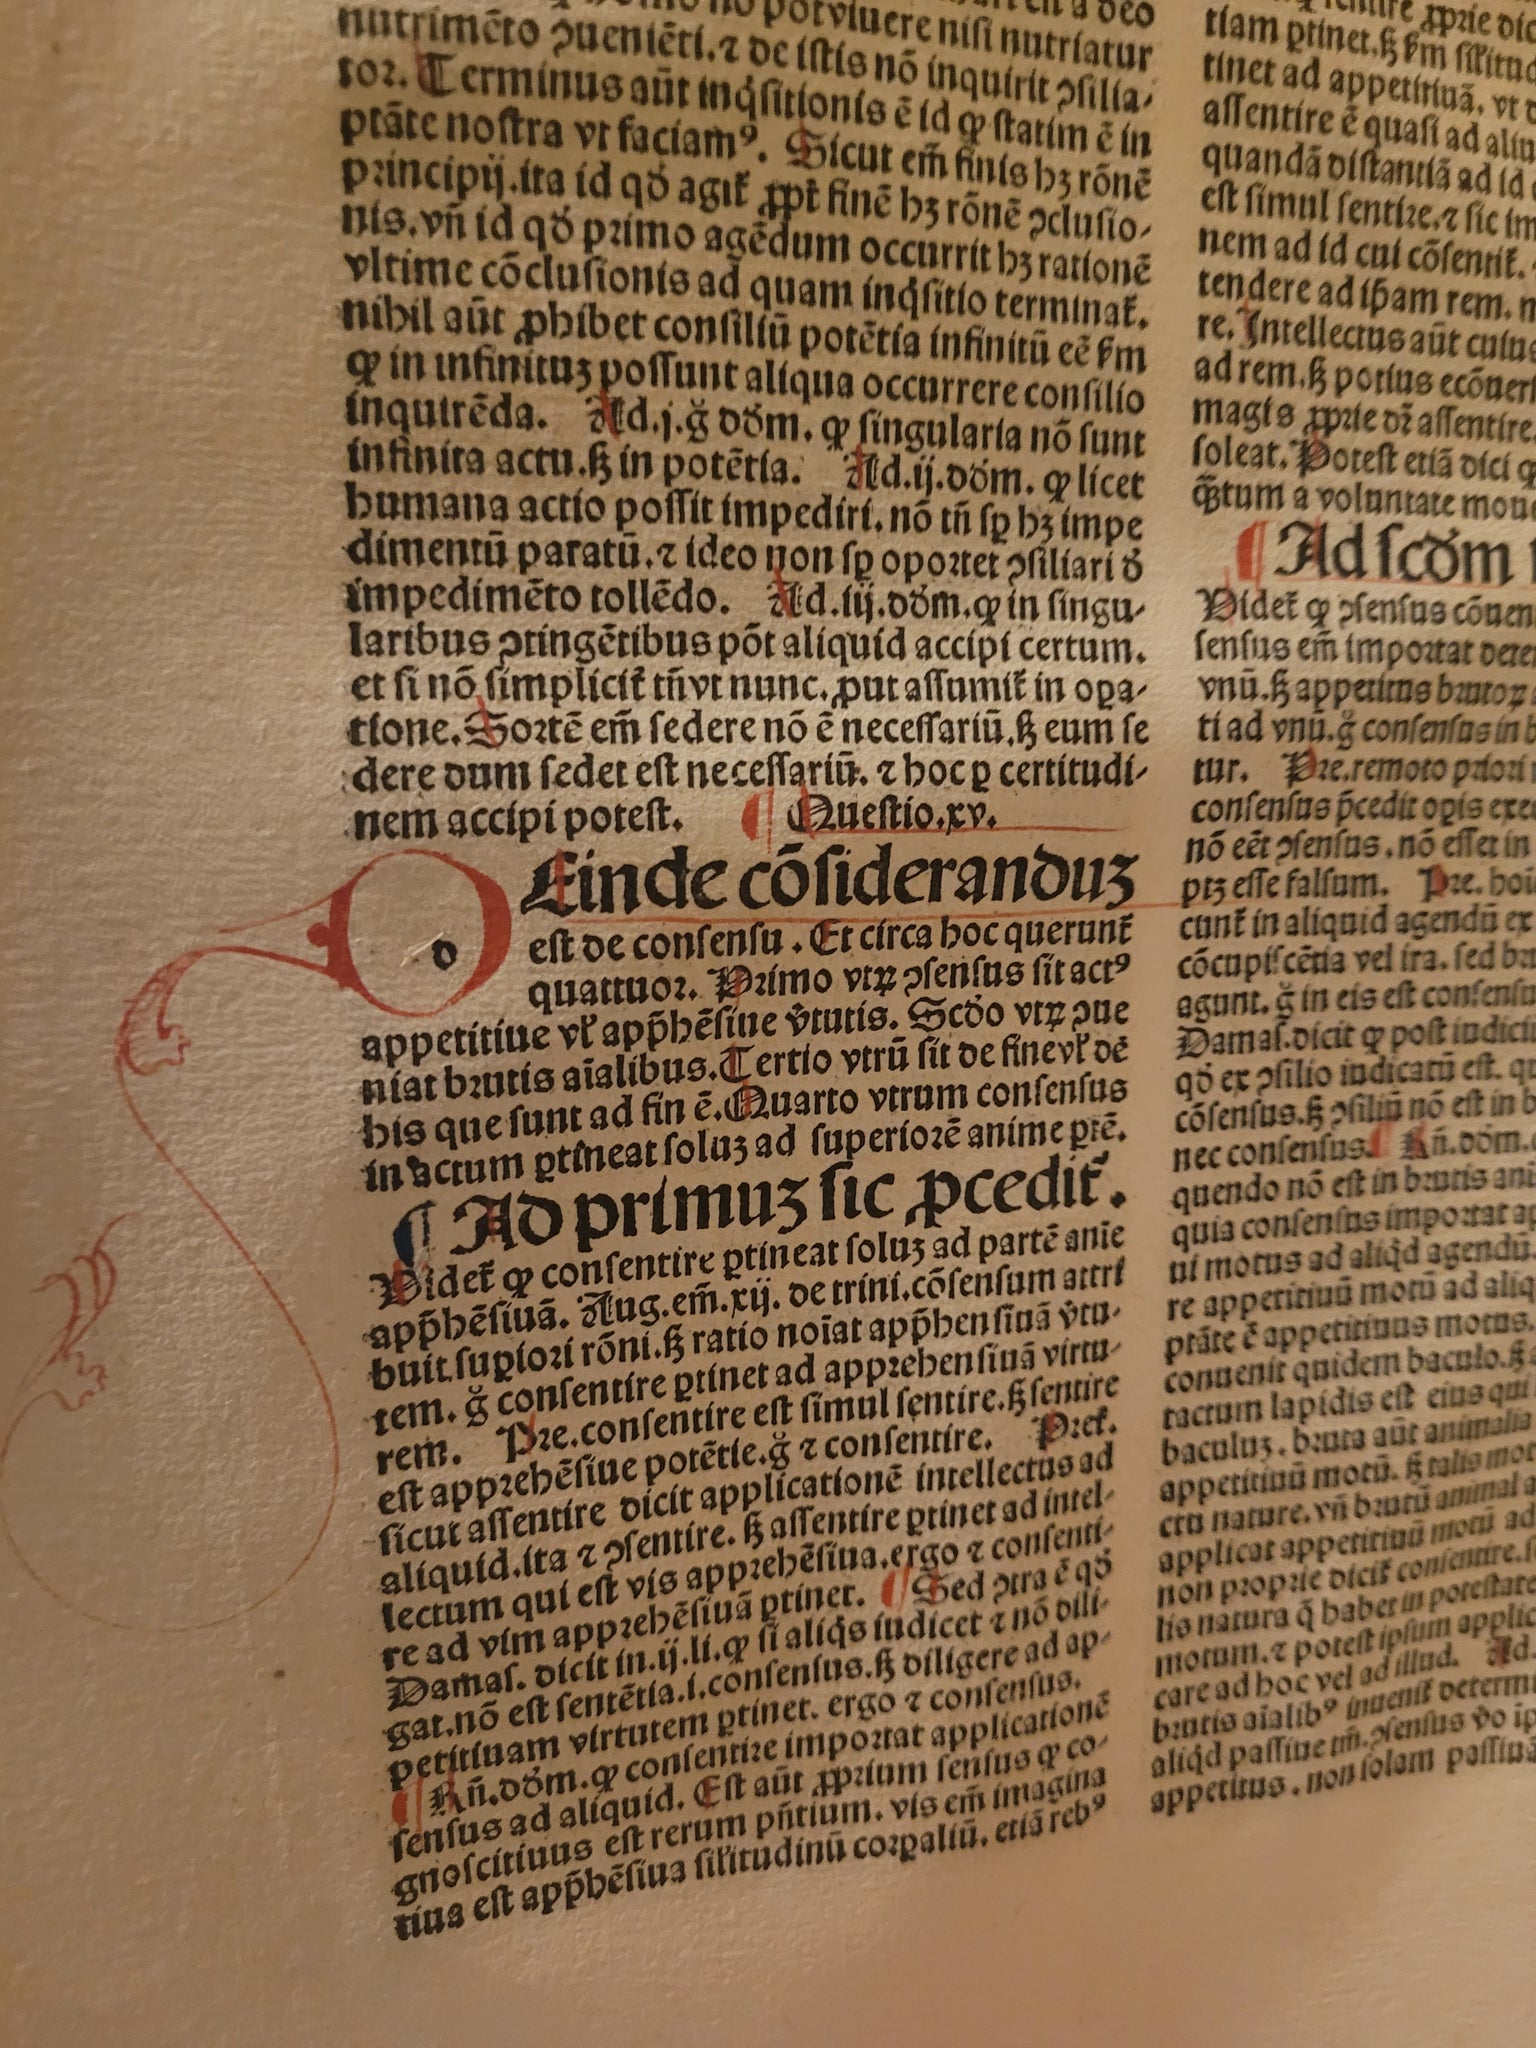 nutrimēto ꝯueniēti.⁊ de istis nō inquirit ꝯsilia⸗
tor. Terminus aūt inq̇sitionis ē id ꝙ statim ē in
ptāte nostra vt faciamꝰ. Sicut em̄ finis hꝫ rōnē
principij.ita id qḋ agit̄ ꝓpt̄ finē hꝫ rōnē ꝯclusio⸗
nis.vn̄ id qḋ primo agēdum occurrit hꝫ rationē
vltime cōclusionis ad quam inq̇sitio terminat̄.
nihil aūt ꝓhibet consiliū potētia infinitū eē ẜm
ꝙ in infinituꝫ possunt aliqua occurrere consilio
inquirēda. Ad.j.g̊ dd̊m. ꝙ singularia nō sunt
infinita actu.ẜꝫ in potētia. Ad.ij.dd̊m. ꝙ licet
humana actio possit impediri.nō tn̄ sꝑ hꝫ impe
dimentū paratū.⁊ ideo non sꝑ oportet ꝯsiliari d̊
impedimēto tollēdo. Ad.iij.dd̊m.ꝙ in singu⸗
laribus ꝯtingētibus pōt aliquid accipi certum.
et si nō simplicit̄ tn̄ vt nunc.ꝓut assumit̄ in oꝑa⸗
tione.Sortē em̄ sedere nō ē necessariū.ẜꝫ eum se
dere dum sedet est necessariū. ⁊ hoc ꝑ certitudi⸗
nem accipi potest. ¶ Questio.xv.
D Einde cōsideranduꝫ
est de consensu . Et circa hoc querunt̄
quattuor. Primo vtꝝ ꝯsensus sit actꝰ
appetitiue vl̄ app̄hēsiue v̄tutis. Scd̊o vtꝝ ꝯue
niat brutis aīalibus.Tertio vtrū sit de fine vl̄ dē
his que sunt ad fin ē.Quarto vtrum consensus
in actum ꝑtineat soluꝫ ad superiorē anime ꝑtē.
¶ Ad primuꝫ sic ꝓcedit̄.
Videt̄ ꝙ consentire ꝑtineat soluꝫ ad partē anīe
app̄hēsiuā. Aug.em̄.xij. de trini.cōsensum attri
buit.suꝑiori rōni.ẜꝫ ratio noīat app̄hensiuā v̄tu⸗
tem. g̊ consentire ꝑtinet ad apprehensiuā virtu⸗
tem. Pre.consentire est simul sentire.ẜꝫ sentire
est apprehēsiue potētie.g̊ ⁊ consentire. Pret̄.
sicut assentire dicit applicationē intellectus ad
aliquid.ita ⁊ ꝯsentire. ẜꝫ assentire ꝑtinet ad intel⸗
lectum qui est vis apprehēsiua.ergo ⁊ consenti⸗
re ad vim apprehēsiuā ꝑtinet. ¶ Sed ꝯtra ē qḋ
Damas. dicit in.ij.li.ꝙ si aliq̇s iudicet ⁊ nō dili⸗
gat.nō est sentētia.i.consensus.ẜꝫ diligere ad ap⸗
petitiuam virtutem ꝑtinet. ergo ⁊ consensus.
¶ Rn̄.dd̊m.ꝙ consentire importat applicationē
sensus ad aliquid. Est aūt ꝓprium sensus ꝙ co⸗
gnoscitiuus est rerum pn̄tium. vis em̄ imagina
tiua est app̄hēsiua sil̄itudinū corꝑaliū. etiā rebꝰ
tiam ꝑtinet.ẜꝫ ẜm sil̄itud
tinet ad appetitiuā. vt
assentire ē quasi ad aliu
quandā distantiā ad id
est simul sentire.⁊ sic im
nem ad id cui cōsentit̄.
tendere ad ip̄am rem.
re. Intellectus aūt cuius
ad rem.ẜꝫ potius ecōuer
magis ꝓprie dr̄ assentire.
soleat. Potest etiā dici ꝙ
tum a voluntate moue
¶ Ad scd̊m
Videt̄ ꝙ ꝯsensus cōuen
sensus em̄ importat deter
vnū.ẜꝫ appetitus brutoꝝ
ti ad vnū.g̊ consensus in b
tur. Pre.remoto priori
consensus p̄cedit oꝑis exe
nō eēt ꝯsensus.nō esset in
ptꝫ esse falsum. Pre. hoī
cunt̄ in aliquid agendū ex
cōcupiscētia vel ira. sed br
agunt. g̊ in eis est consensu
Damas.dicit ꝙ post iudici
qḋ ex ꝯsilio iudicatū est.
cōsensus.ẜꝫ ꝯsiliū nō est in b
nec consensus. ¶ Rn̄.dd̊m.
quendo nō est in brutis ani
quia consensus importat ap
ui motus ad aliq̇d agendū.
re appetitiuū motū ad aliq
ptāte ē appetitiuus motus.
conuenit quidem baculo.ẜꝫ
tactum lapidis est eius qui
baculuꝫ. bruta aūt animalia
appetitiuū motū. ẜꝫ talis mot
ctu nature.vn̄ brutū animal
applicat appetitiuū motū ad
non proprie dicit̄ consentire.
lis natura q̄ habet in potestate
motum.⁊ potest ipsum applic
care ad hoc vel ad illud. Ad.
brutis aīalibꝰ inuenit̄ determi
aliq̇d passiue tm̄.ꝯsensus v̊o
appetitus . non solam passiuā